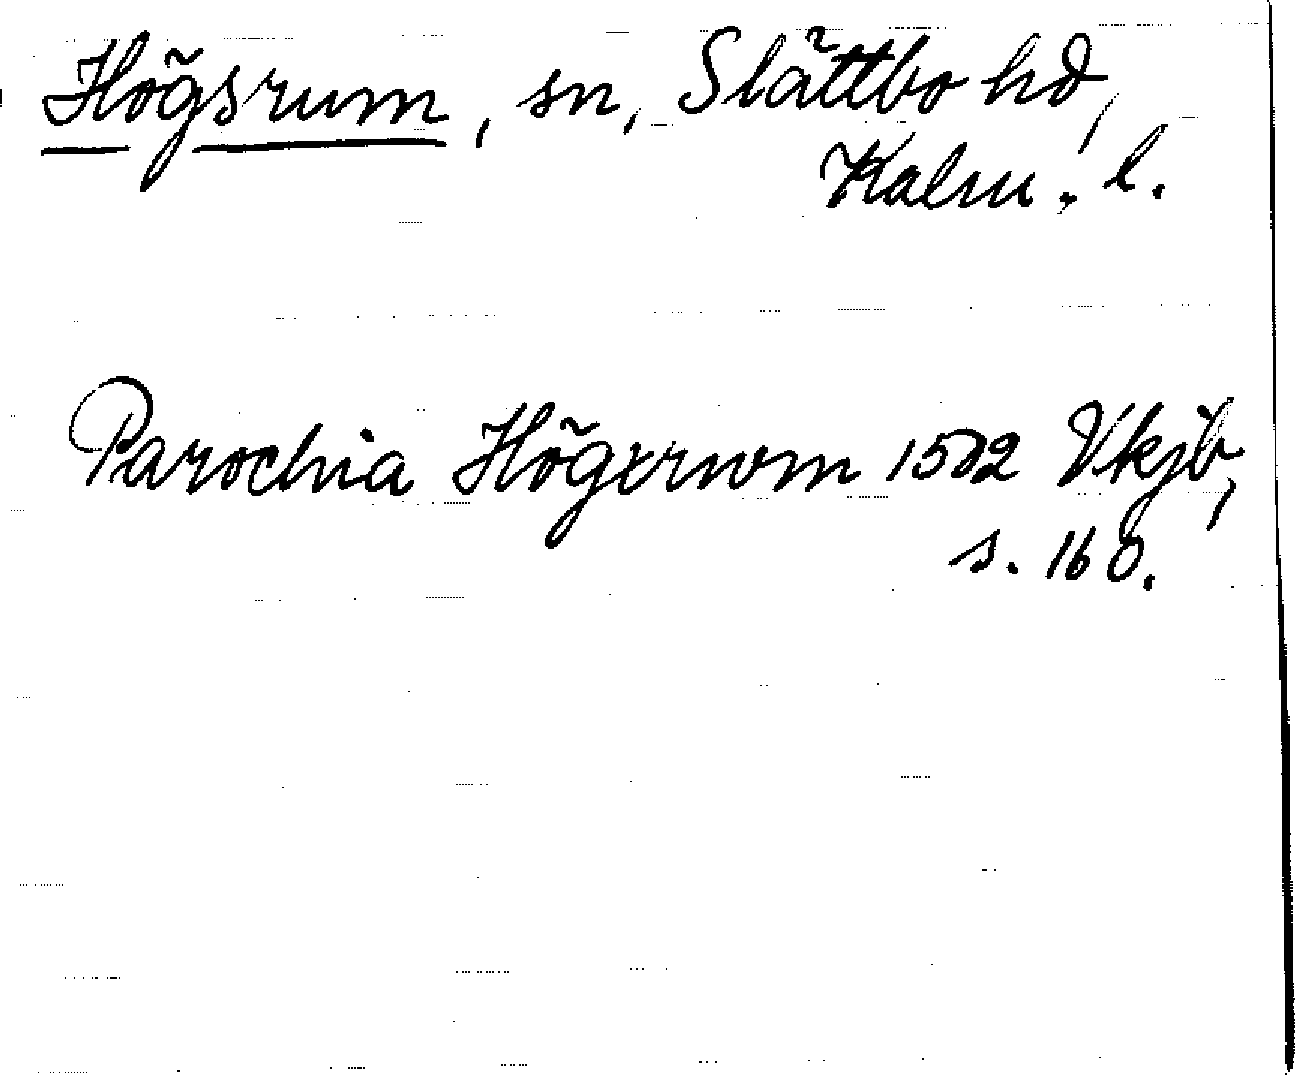 Högsrum, sn, Slättbo hd,
Kalm. l.
Parochia Högxrwm 1502 Vkjb,
s. 160.